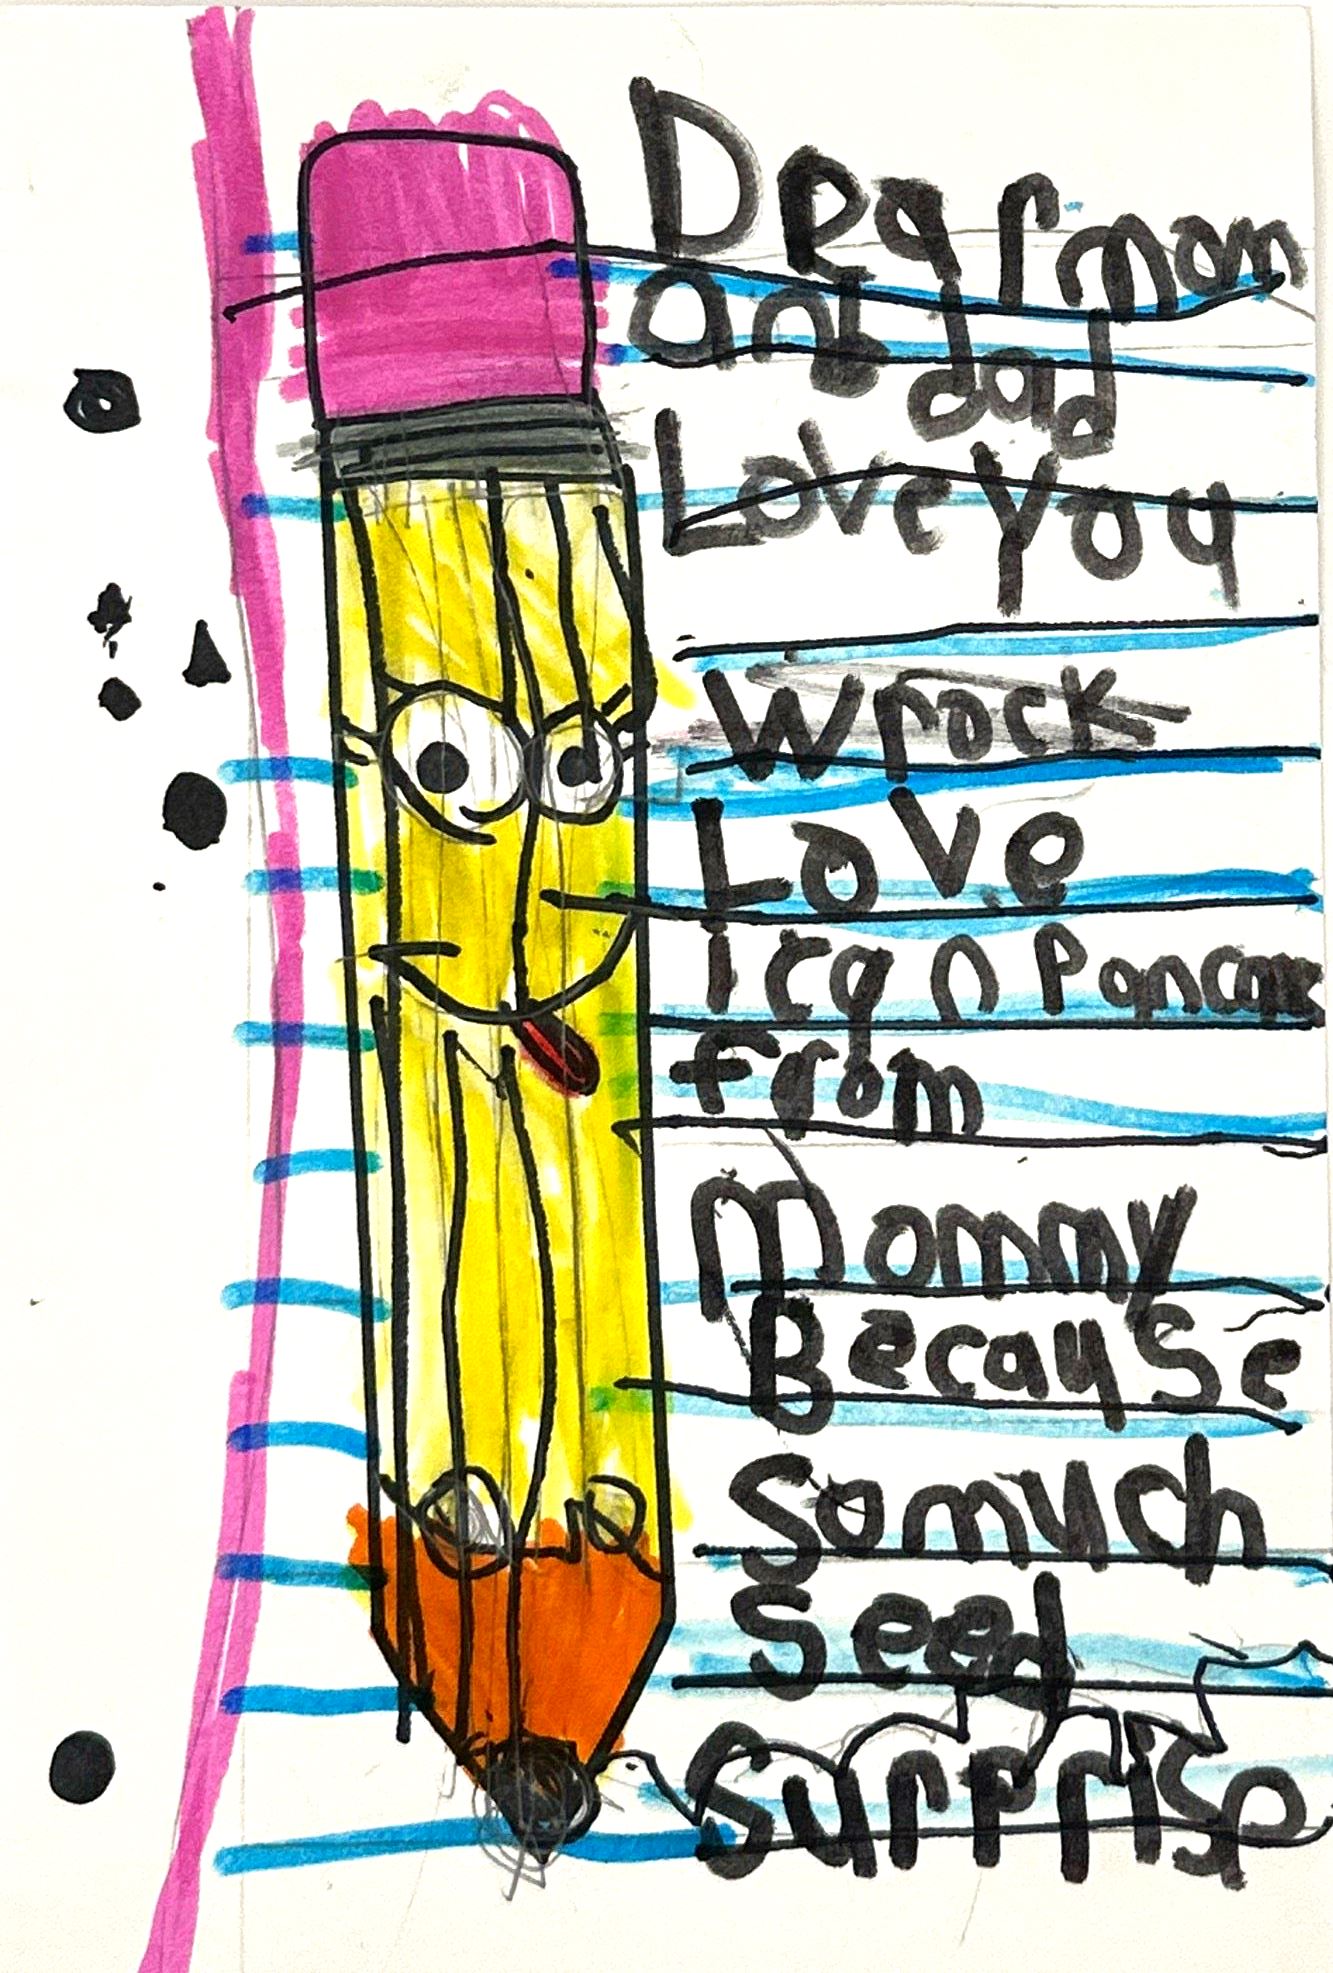 Dear mom
and dad
Love You
Wrock
Love
I can Pancake
from
Mommy
Because
So much
Seed
Surprise